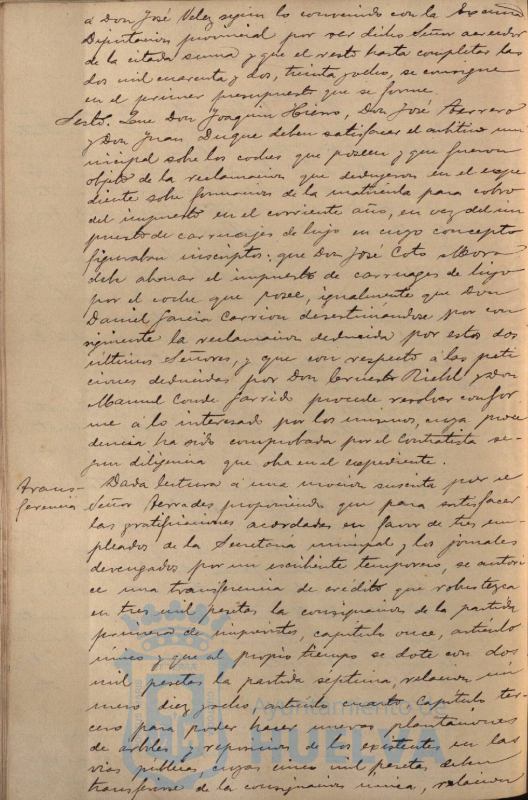 a Don José Velez segun lo convenido con la Excma
Diputacion provincial por ser dicho Señor acreedor
de la citada suma y que el resto hasta completar las
dos mil cuarenta y dos, treinta y ocho, se consigne
en el primer presupuesto que se forme.
Sexto. Que Don Joaquin Hierro, Don José Herrero
y Don Juan Duque deben satisfacer el arbitrio mu
nicipal sobre los coches que poseen y que fueron
objeto de la reclamacion que dedujeron en el expe
diente sobre formacion de la matricula para cobro
del impuesto en el corriente año, en vez del im
puesto de carruajes de lujo en cuyo concepto
figuraban inscriptos: que Don José Coto Mora
debe abonar el impuesto de carruages de lujo
por el coche que posee, igualmente que Don
Daniel Garcia Carrion desestimandose por con
siguiente la reclamacion deducida por estos dos
ultimos Señores, y que con respecto á las peti
ciones deducidas por Don Ernesto Riehl y Don
Manuel Conde Garrido procede resolver confor
me á lo interesado por los mismos, cuya proce
dencia ha sido comprobada por el Contratista se
gun diligencia que obra en el expediente.
Trans-
ferencia
Dada lectura á una mocion suscrita por el
Señor Terrades proponiendo que para satisfacer
las gratificaciones acordadas en favor de tres em
pleados de la Secretaria municipal y los jornales
devengados por un escribiente temporero, se autori
ce una transferencia de crédito que robustezca
en tres mil pesetas la consignacion de la partida
primera de imprevistos, capítulo once, artículo
unico y que al propio tiempo se dote con dos
mil pesetas la partida septima, relacion nú
mero diez y ocho, articulo cuarto, capitulo ter-
cero para poder hacer nuevas plantaciones
de arboles y reposicion de los existentes en las
vias públicas, cuyas cinco mil pesetas deben
transferirse de la consignacion unica, relacion
Ayuntamiento de
HUELVA